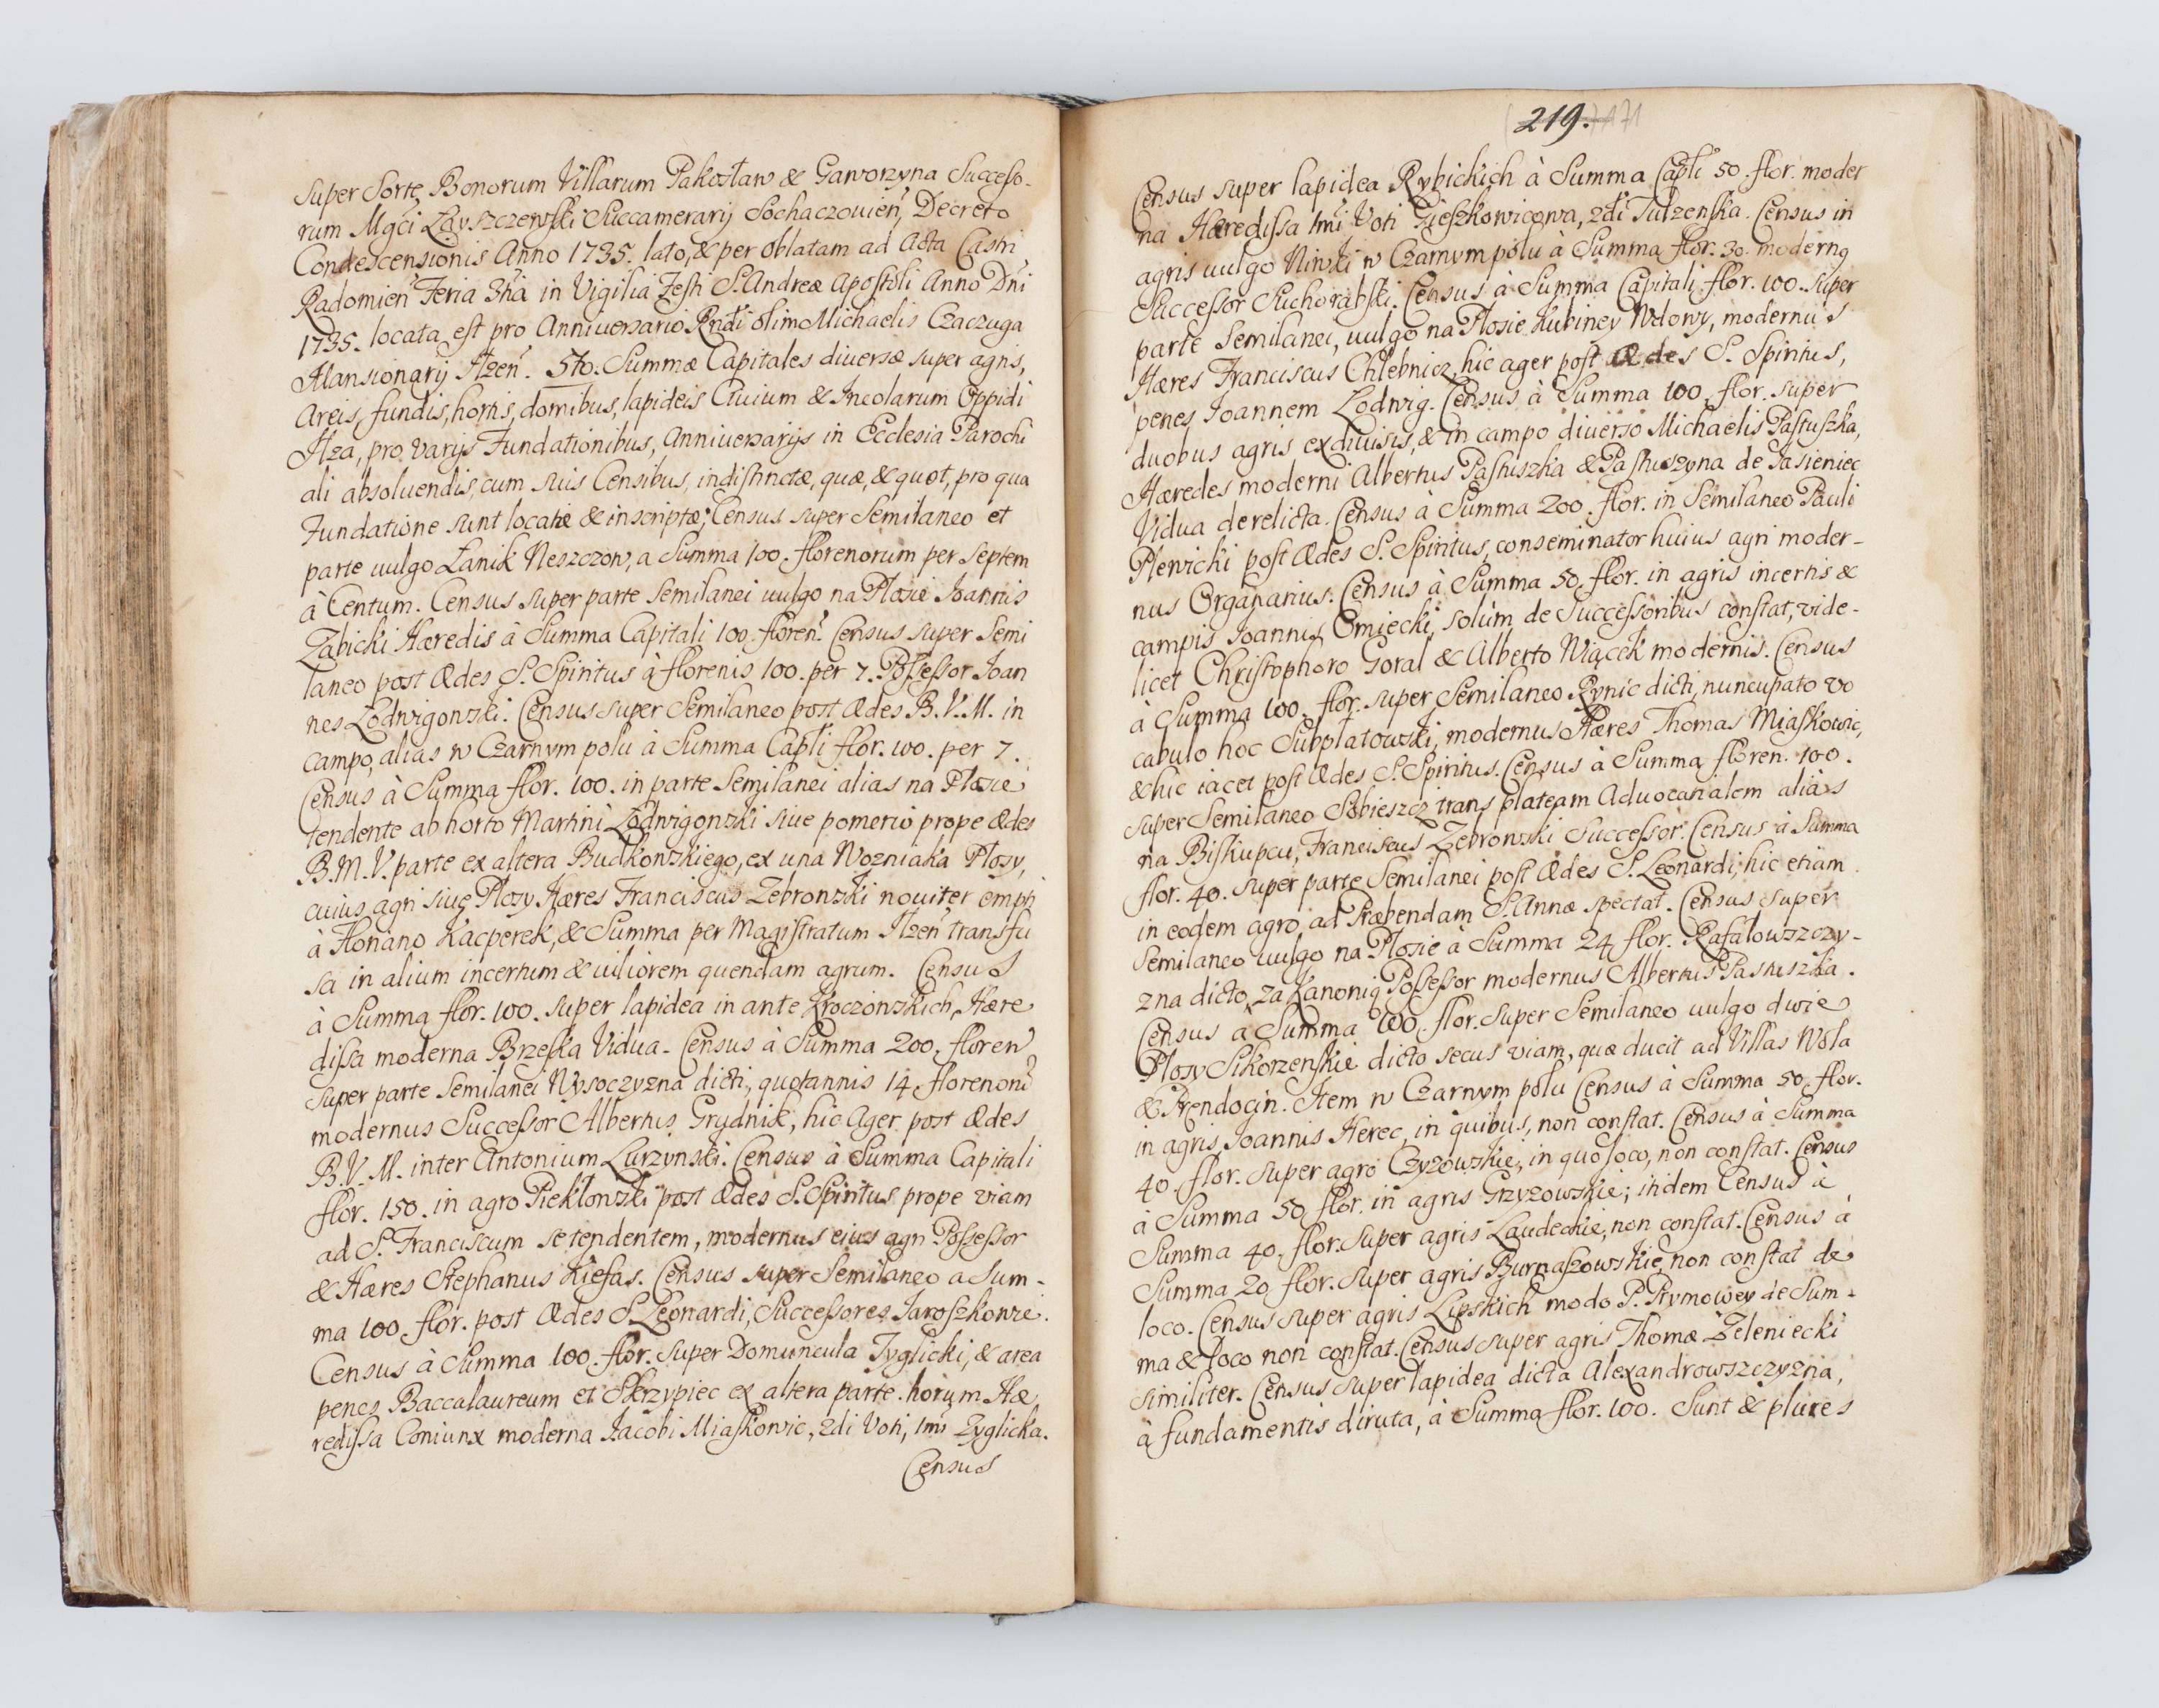 super Sorte Bonorum Villarum Pakosław & Gaworzyna Successo-
rum Mgci Łayszczewski Succamerarij Sochaczouien, Decreto
Condescensionis Anno 1735. lato, & per oblatam ad Acta Castri
Radomien Feria 3tia in Vigilia Festi S. Andreæ Apostoli Anno Dni
1735. locata est pro Anniuersario Rndi olim Michaelis Czaczuga
Mansionarij Ilzen. 5to. Summæ Capitales diuersæ super agris,
Areis, fundis, hortis, domibus, lapideis Ciuium & Incolarum Oppidi
Ilza, pro varijs Fundationibus, Anniuersarijs in Ecclesia Parochi
ali absoluendis, cum suis Censibus, indistinctæ, quæ, & quot, pro qua
Fundatione sunt locatæ & inscriptæ; Census super Semilaneo et
parte uulgo Łanik Neszczow, a Summa 100. florenorum per septem
à Centum. Census super parte Semilanei uulgo na Płosie Joannis
Zabicki Hæredis à Summa Capitali 100. floren. Census super Semi
laneo post Ædes S. Spiritus à florenis 100. per 7. Possessor Joan
nes Lodwigonski. Census super Semilaneo post Ædes B.V.M. in
campo, alias w Czarnym polu à Summa Capli flor. 100. per 7.
Census à Summa flor. 100. in parte Semilanei alias na Płosie
tendente ab horto Martini Lodwigonski siue pomerio prope Ædes
B.M.V. parte ex altera Budkowskiego, ex una Wozniaka Płosy,
cuius agri siue Płosy Hæres Franciscus Zebronski nouiter empti
à Floriano Kacperek, & Summa per Magistratum Ilzen transfu
sa in alium incertum & uiliorem quendam agrum. Census
à Summa flor. 100. super lapidea in ante Kroczonskich, Hære
dissa moderna Brzeska Vidua. Census à Summa 200. floren
super parte Semilanei Wysoczyzna dicti, quotannis 14 florenorũ
modernus Successor Albertus Grydnik, hic Ager post Ædes
B.V.M. inter Antonium Lurzynski. Census à Summa Capitali
flor. 150. in agro Piekłonski post Ædes S. Spiritus prope viam
ad S. Franciscum se tendentem, modernus eius agri Possessor
& Hæres Stephanus Kiefas. Census super Semilaneo a Sum-
ma 100 flor. post Ædes S. Leonardi, Successores Jaroszkowie.
Census à Summa 100. flor. super Domuncula Tyglicki, & area
penes Baccalaureum et Skrzypiec ex altera parte. horum Hæ
redissa Coniunx moderna Jacobi Miaskowic, 2di Voti, 1mi Zyglicka.
Census
219.
Census super lapidea Rybickich à Summa Capli 50. flor. moder
na Hæredissa 1mi Voti Gieszkowicowa, 2di Tulzenska. Census in
agris uulgo Niwki w Czarnym polu à Summa flor. 30. modernq
Successor Suchorabski. Census à Summa Capitali flor. 100. super
parte Semilanei, uulgo na Płosie Kubiney Wdowy, modernus
Hæres Franciscus Chlebnicz, hic ager post Ædes S. Spiritus,
penes Joannem Lodwig. Census à Summa 100. flor. super
duobus agris exdiuisis, & in campo diuerso Michaelis Pastuszka,
Hæredes moderni Albertus Pastuszka & Pastuszyna de Jasieniec
Vidua derelicta. Census à Summa 200. flor. in Semilaneo Pauli
Plewicki post Ædes S. Spiritus, conseminator huius agri moder-
nus Organarius. Census à Summa 50. flor. in agris incertis &
campis Joannis Omiecki, solùm de Successoribus constat, vide-
licet Christophoro Goral & Alberto Wiącek modernis. Census
à Summa 100. flor. super Semilaneo Rynic dicti, nuncupato vo
cabulo hoc Subplatowski, modernus Hæres Thomas Miaskowic,
& hic iacet post Ædes S. Spiritus. Census à Summa floren. 100.
super Semilaneo Sobieszcz trans plateam Aduocatialem aliàs
na Biskupcu, Franciscus Zebrowski Successor. Census à Summa
flor. 40. super parte Semilanei post Ædes S. Leonardi, hic etiam
in eodem agro, ad Præbendam S. Annæ spectat. Census super
Semilaneo uulgo na Płosie à Summa 24 flor. Rafałowszczy-
zna dicto, za Kanonią Possessor modernus Albertus Pastuszka.
Census à Summa 100. flor. super Semilaneo uulgo dwie
Płosy Sikorzenskie dicto secus viam, quæ ducit ad Villas Wola
& Prendocin. Item w Czarnym polu Census à Summa 50. flor.
in agris Joannis Herec, in quibus, non constat. Census à Summa
40. flor. super agro Czyzowskie, in quo loco, non constat. Census
à Summa 50 flor. in agris Grzyzowskie; itidem Census à
Summa 40. flor. super agris Laudeckie, non constat. Census à
Summa 20 flor. super agris Burnaszowskie, non constat de
loco. Census super agris Lipskich modo P. Rymowey de Sum-
ma & loco non constat. Census super agris Thomæ Zeleniecki
similiter. Census super lapidea dicta Alexandrowszczyzna,
à fundamentis diruta, à Summa flor. 100. Sunt & plures